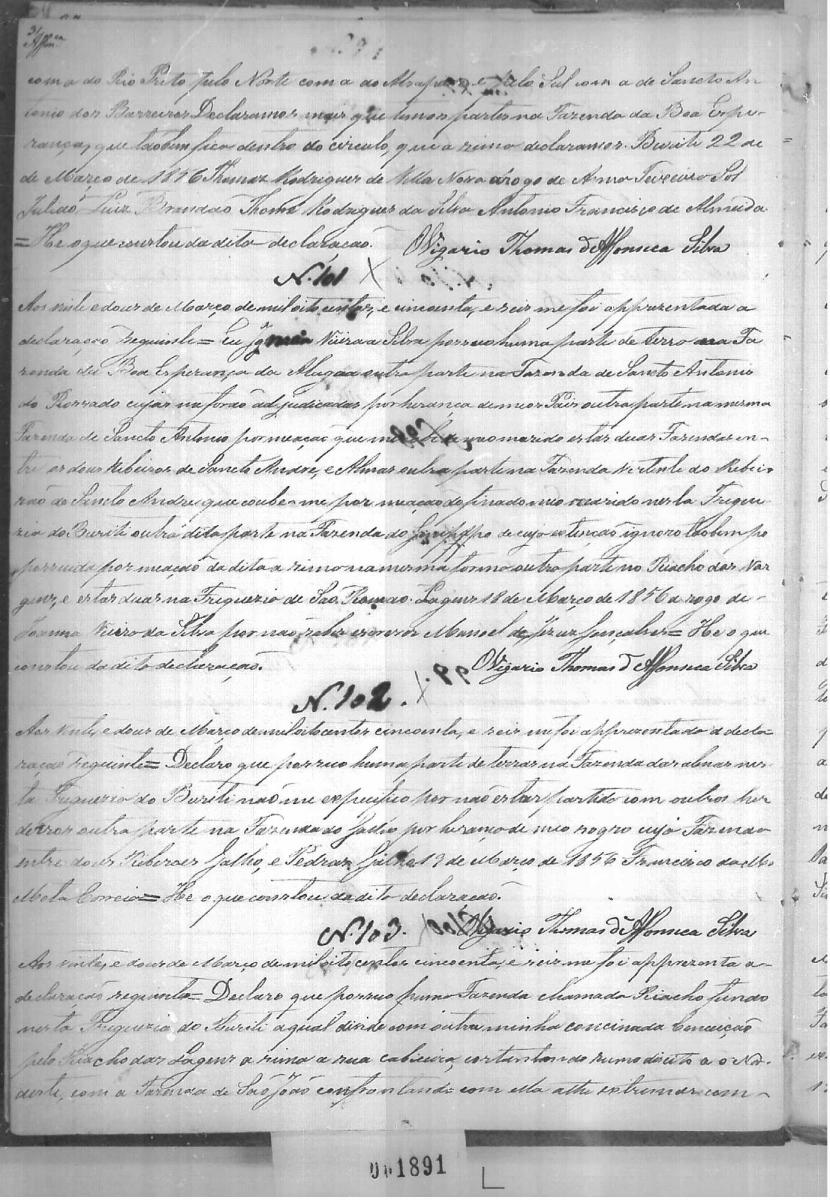 com a do Rio Preto pelo Norte com a do e pelo Sul com a de Sancto An-
tonio dos Barreiros Declaramos mais que temos partes na Fazenda da Boa Espe-
rança, que tãobem fica dentro do circulo, que a sima declaramos. Buriti 22 de
de Março de 1856 Thomaz Rodrigues de Villa Nova arogo de Anna Teixeira
Julião Luiz Brandão Thomé Rodrigues da Silva Antonio Francisco de Almeida
= He o que constou da dita declaração. O Vigario Thomas d'Affonseca Silva
N. 101
Aos vinte e dous de Março de mil oito centos, e cincoenta, e seis me foi apprezentada a
declaração seguinte = Eu Vieira a Silva possuo huma parte de terra na Fa
zenda da Boa Esperança da outra parte na Fazenda de Sancto Antonio
do Rossado cujas na forão adjudicadas por herança de meos Pais outra parte na mesma
Fazenda de Sancto Antonio por meação que meo marido estas duas Fazendas en-
tre os dous Ribeiros de Sancto Andre, e Almas outra parte na Fazenda Vertente do Ribei
rão de Sancto Andre que coube-me por meação do finado meo marido nesta Fregue
zia do Buriti outra dita parte na Fazenda do de cuja extenção ignoro tãobem po
possuida por meação da dita a sima na mesma forma outra parte no Riacho das Var
gens, e estas duas na Freguezia de São Romão. Lagens 18 de Março de 1856 a rogo de
Joanna Vieira da Silva por não saber escrever Manoel de Gonçalves = He o que
constou da dita declaração. O Vigario Thomas d'Affonseca Silva
N. 102.
Aos vinte, e dous de Março de mil oito centos cincoenta, e seis me foi apprezentada a decla-
ração seguinte = Declaro que possuo huma parte de terras na Fazenda das almas nes-
ta Freguezia do Buriti não me expecifico por não estar partido com outros her
deiros outra parte na Fazenda do Galho por herança de meo sogro cuja Fazenda
entre dous Riberoes Galho, e Pedras Galho 19 de Março de 1856 Francisco da M.
Mota Correia = He o que constou da dita declaração.
N. 103. O Vigario Thomas d'Affonseca Silva
Aos vinte, e dous de Março de mil oito centos cincoenta, e seis me foi apprezenta a
declaração seguinte = Declaro que possuo huma Fazenda chamada Riacho fundo
nesta Freguezia do Buriti a qual divide com outra minha Conceição
pelo Riacho das Lagens a sima a sua cabiceira, cortando rumo direito a o Nor-
deste, com a Fazenda de São João confrontando com ella athe extremar com-
001891